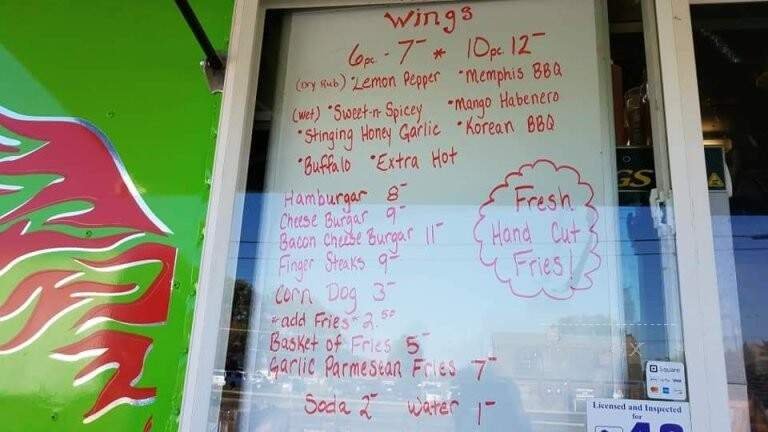 Wings
6pc - 7- * 10pc 12-
(Dry Rub) •Lemon Pepper •Memphis BBQ
(wet) •Sweet-n-Spicey •Mango Habenero
•Stinging Honey Garlic •Korean BBQ
•Buffalo •Extra Hot
Hamburgar 8-
Cheese Burgar 9-
Bacon Cheese Burgar 11-
Finger Steaks 9-
Corn Dog 3-
*add Fries* 2.50
Basket of Fries 5-
Garlic Parmesean Fries 7-
Soda 2- Water 1-
Fresh
Hand Cut
Fries!
GS
A
Square
Licensed and Inspected
for